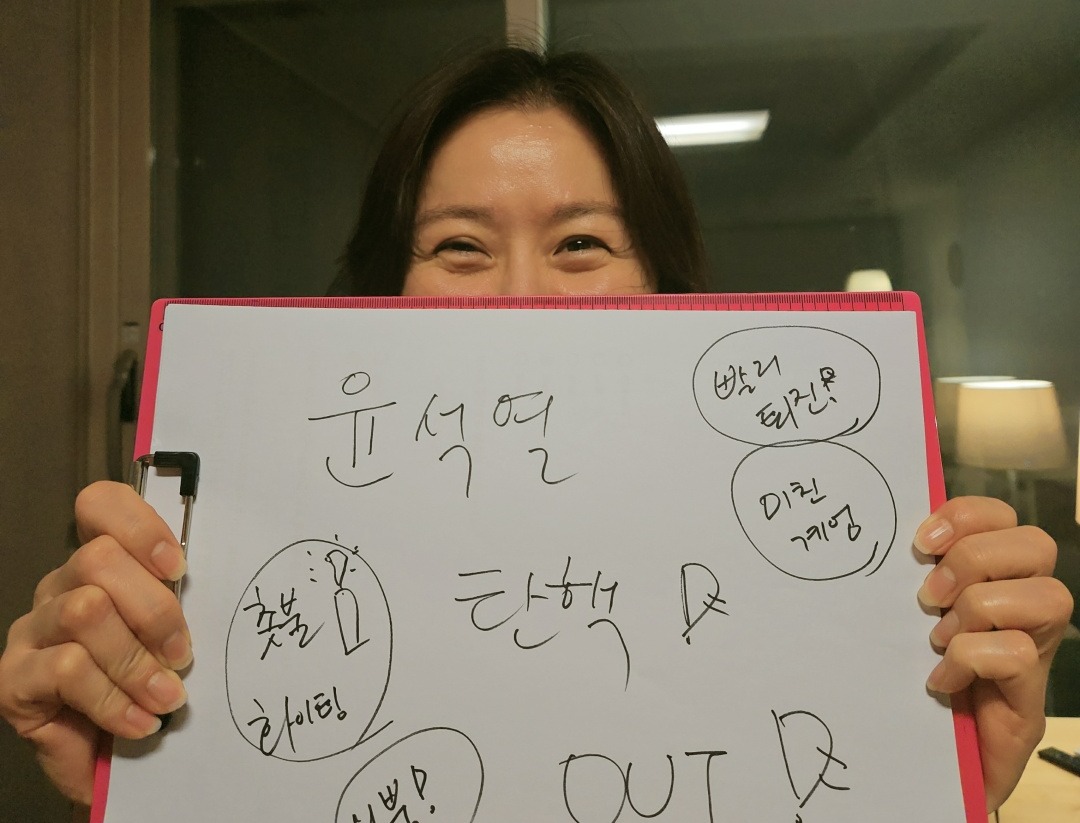 윤석열
탄핵!
OUT!
빨리
퇴진!
미친
계엄
촛불
화이팅